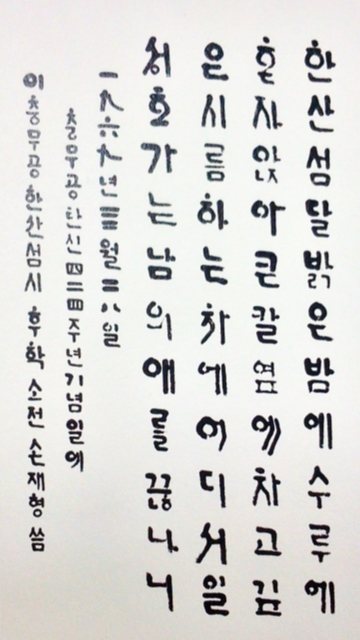 한산섬달밝은밤에수루에
혼자앉아큰칼옆에차고깊
은시름하는차에어디서일
성호가는남의애를끊나니
一九六九년亖월二八일
충무공탄신四二四주년기념일에
이충무공한산섬시 후학 소전 손재형 씀